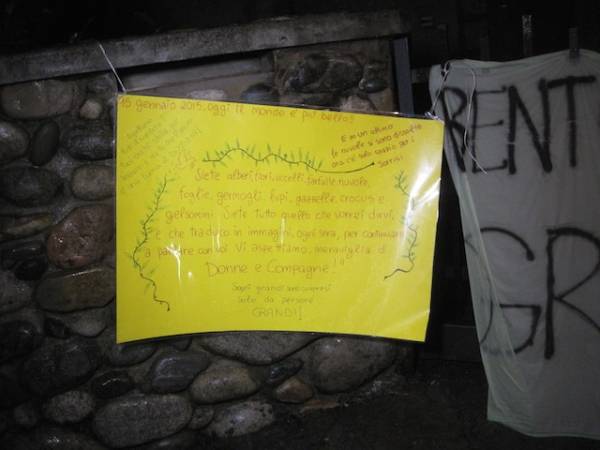 15 gennaio 2015, oggi il mondo è più bello!!
E in un attimo
le nuvole si sono dissolte
ora c'è solo spazio per i
sorrisi
"Siete alberi, fiori, uccelli, farfalle, nuvole,
foglie, germogli, lupi, gazzelle, crocus e
gelsomini. Siete tutto quello che vorrei dirvi,
e che traduco in immagini, ogni sera, per continuare
a parlare con voi. Vi aspettiamo, meraviglia di
Donne e Compagne!"
Sogni grandi sono concessi
solo da persone
GRANDI!
RENT
GR